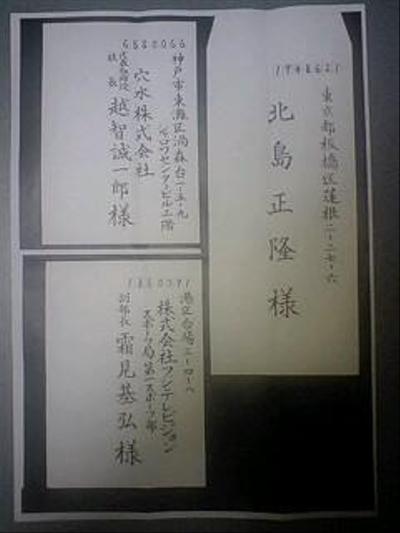 6580066
神戸市東灘区渦森台一-五-九
センタービル二階
穴水株式会社
代表取締役
社長
越智誠一郎様
東京都板橋区蓮根二-二七-六
北島正隆様
港区台場二-四-八
株式会社フジテレビジョン
スポーツ局第一スポーツ部
副部長
霜見基弘様